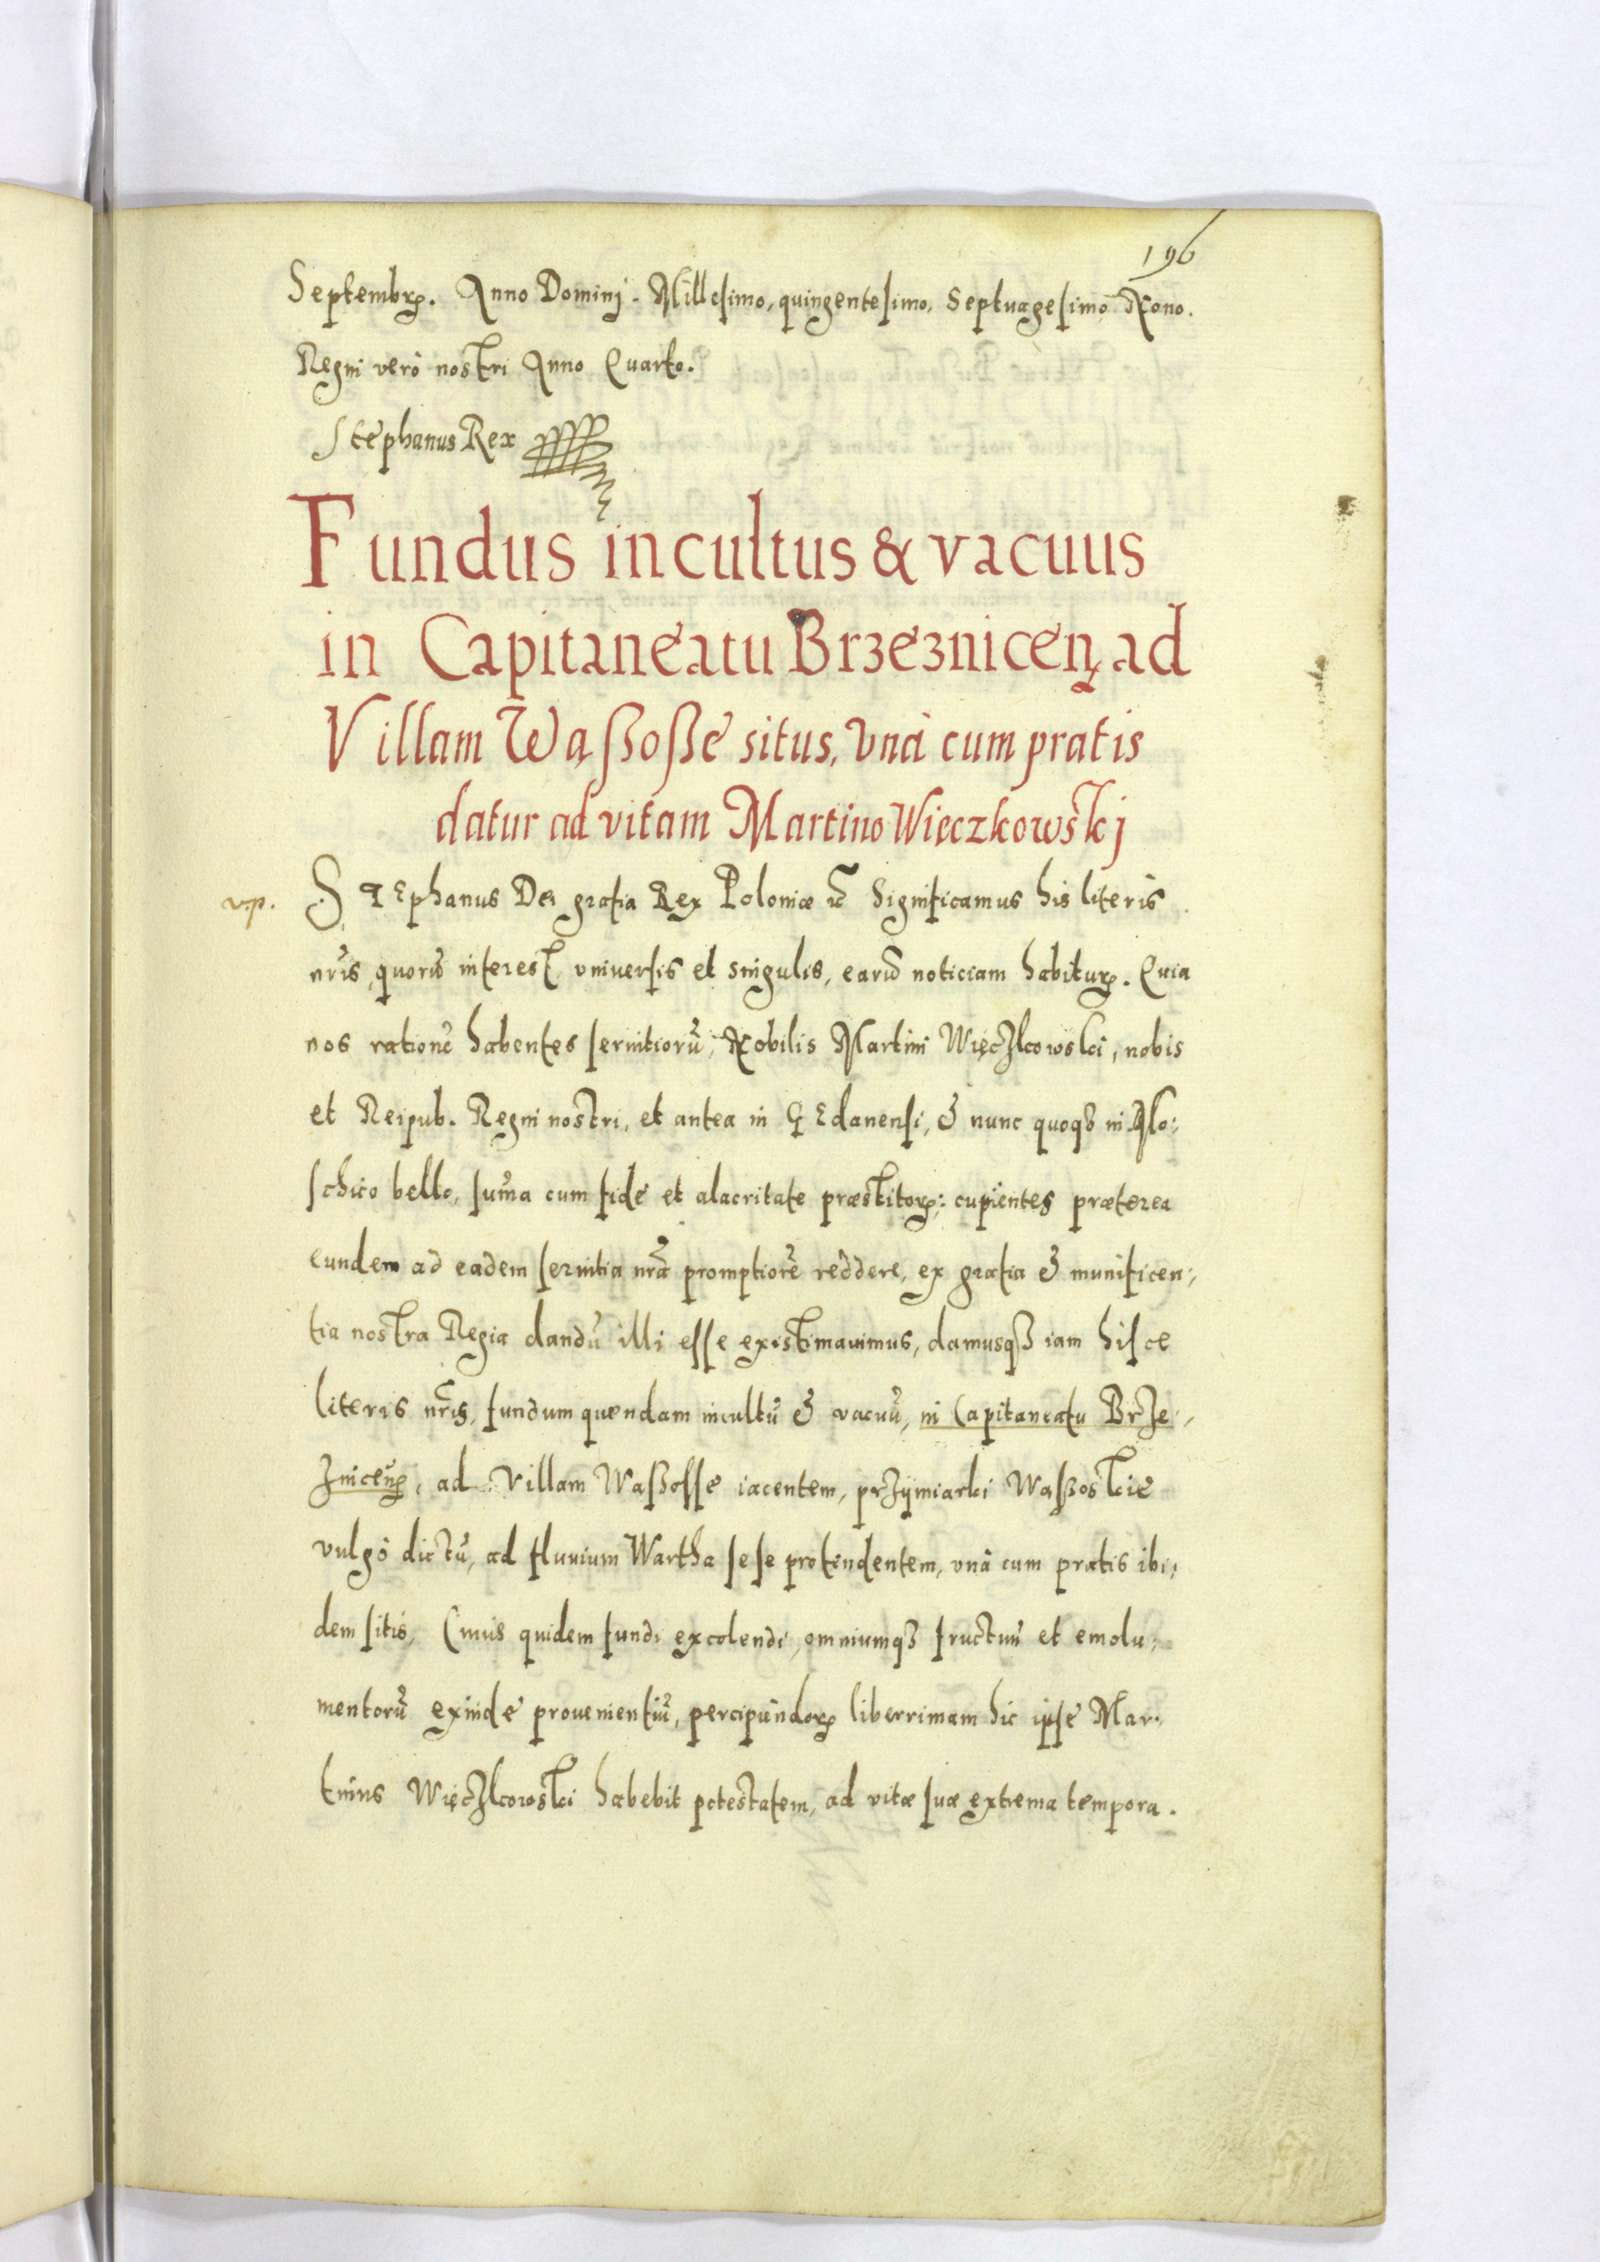 196
Septembrꝭ. Anno Dominj. Millesimo, quingentesimo, Septuagesimo Nono.
Regni verò nostri Anno Quarto.
Stephanus Rex
Fundus incultus & vacuus
in Capitaneatu Brzeznicenꝭ ad
Villam Wąßoße situs, vnà cum pratis
datur ad vitam Martino Więczkowskj
vp.
STEphanus Dei gratia Rex Poloniæ ꝛc̃ Significamus his literis
nr̃is, quorũ interest, vniuersis et singulis, earũ noticiam habiturꝭ. Quia
nos rationẽ habentes seruitiorũ, Nobilis Martini Więczkowski, nobis
et Reipub. Regni nostri, et antea in GEdanensi, & nunc quoqꝫ in Mo:
schico bello, sum̃a cum fide et alacritate præstitorꝭ: cupientes præterea
eundem ad eadem seruitia nr̃a promptiorẽ reddere, ex gratia & munificen:
tia nostra Regia dandũ illi esse existimauimus, damusqꝫ iam hisce
literis nr̃is, fundum quendam incultũ & vacuũ, in Capitaneatu Brze:
znicenꝭ, ad Villam Waßosse iacentem, przymiarki Waßoskie
vulgò dictũ, ad fluuium Wartha sese protendentem, vnà cum pratis ibi:
dem sitis, Cuius quidem fundi excolendi, omniumqꝫ fructuũ et emolu:
mentorũ exinde prouenientiũ, percipiundorꝭ liberrimam hic ipse Mar:
tinus Więczkowski habebit potestatem, ad vitæ suæ extrema tempora.